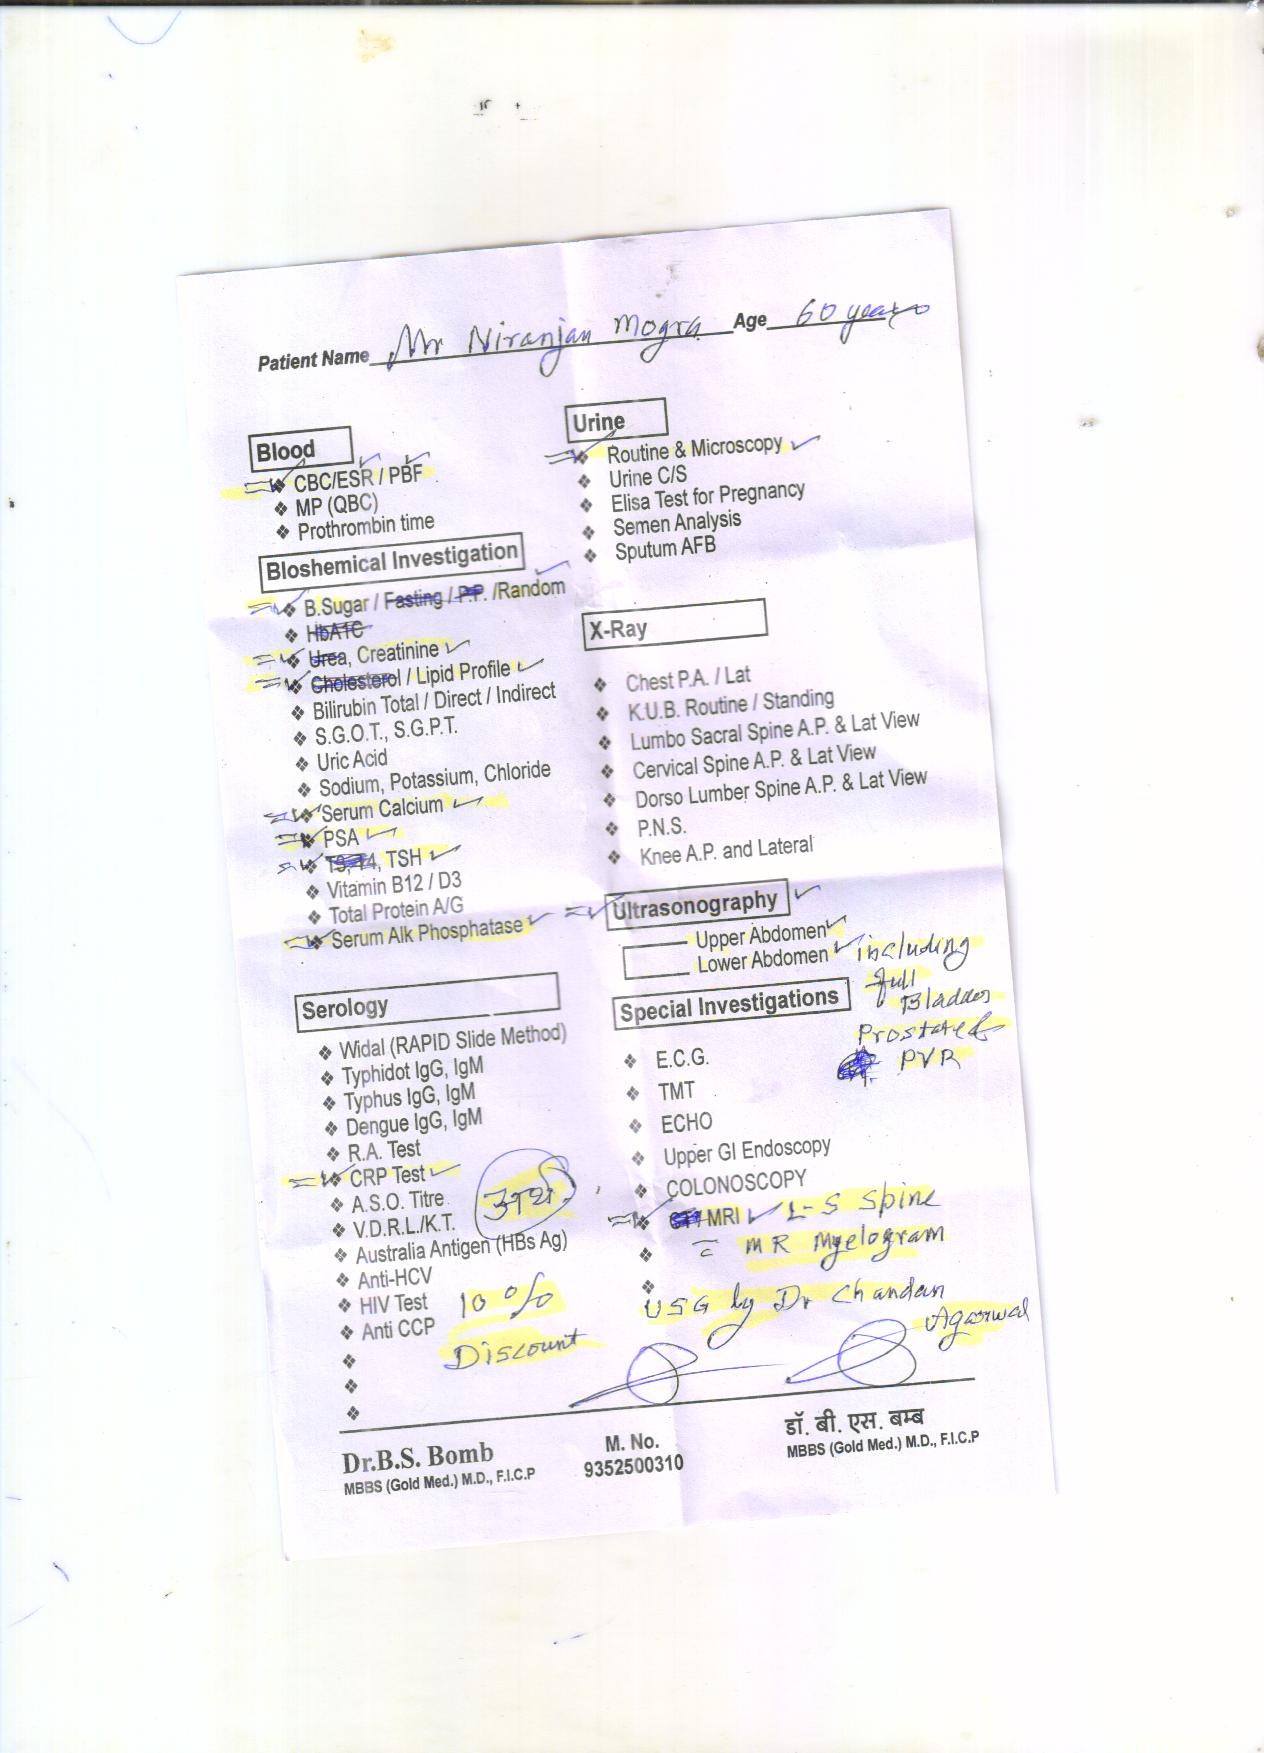 Patient Name Mr Niranjan Mogra Age 60 years
Blood
CBC/ESR / PBF
MP (QBC)
Prothrombin time
Bloshemical Investigation
B.Sugar / Fasting / P.P. /Random
HbA1C
Urea, Creatinine
Cholesterol / Lipid Profile
Bilirubin Total / Direct / Indirect
S.G.O.T., S.G.P.T.
Uric Acid
Sodium, Potassium, Chloride
Serum Calcium
PSA
T3, T4, TSH
Vitamin B12 / D3
Total Protein A/G
Serum Alk Phosphatase
Serology
Widal (RAPID Slide Method)
Typhidot IgG, IgM
Typhus IgG, IgM
Dengue IgG, IgM
R.A. Test
CRP Test
A.S.O. Titre
V.D.R.L./K.T.
Australia Antigen (HBs Ag)
Anti-HCV
HIV Test
Anti CCP
10%
Discount
Urine
Routine & Microscopy
Urine C/S
Elisa Test for Pregnancy
Semen Analysis
Sputum AFB
X-Ray
Chest P.A. / Lat
K.U.B. Routine / Standing
Lumbo Sacral Spine A.P. & Lat View
Cervical Spine A.P. & Lat View
Dorso Lumber Spine A.P. & Lat View
P.N.S.
Knee A.P. and Lateral
Ultrasonography
Upper Abdomen
Lower Abdomen including
full
Bladder
Prostate &
PVR
Special Investigations
E.C.G.
TMT
ECHO
Upper GI Endoscopy
COLONOSCOPY
CT / MRI L-S Spine
c̄ MR Myelogram
USG by Dr Chandan
Agarwal
Dr.B.S. Bomb
MBBS (Gold Med.) M.D., F.I.C.P
M. No.
9352500310
डॉ. बी. एस. बम्ब
MBBS (Gold Med.) M.D., F.I.C.P